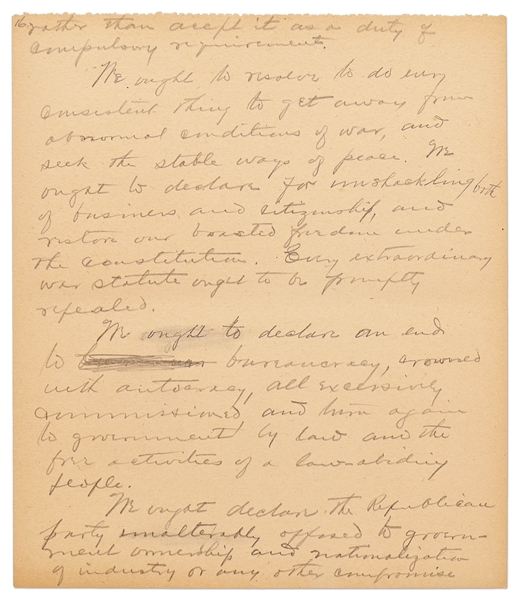 16. rather than accept it as a duty of
compulsory requirement.
We ought to resolve to do every
consistent thing to get away from
abnormal conditions of war, and
seek the stable ways of peace. We
ought to declare for unshackling both
of business and citizenship, and
restore our boasted freedom under
the constitution. Every extraordinary
war statute ought to be promptly
repealed.
We ought to declare an end
to bureaucracy, crowned
with autocracy, all excessively
commissioned and turn again
to government by law and the
free activities of a law-abiding
people.
We ought declare the Republican
party unalterably opposed to govern-
ment ownership and nationalization
of industry or any other compromise